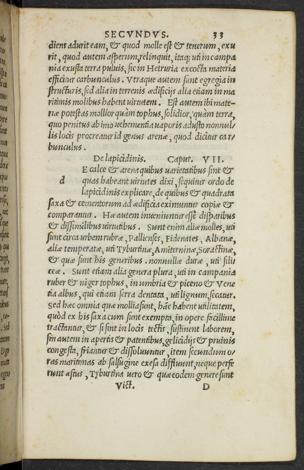 SECVNDVS. 33
dient adurit eam, & quod molle est & tenerum, exu
rit, quod autem asperum, relinquit, itaq; uti in campa
nia exusta terra puluis, sic in Hetruria excocta materia
efficitur carbunculus. Vtraque autem sunt egregia in
structuris, sed alia in terrenis ædificijs alia etiam in ma
ritimis molibus habent uirtutem. Est autem ibi mate-
riæ potestas mollior quàm tophus, solidior, quàm terra,
quo penitus ab imo uehementia uaporis adusto nonnul
lis locis procreatur id genus arenæ, quod dicitur car
bunculus.
De lapicidinis. Caput. VII.
d E calce & arena quibus uarietatibus sint &
quas habeant uirtutes dixi, sequitur ordo de
lapicidinis explicare, de quibus & quadrata
saxa & cæmentorum ad ædificia eximuntur copiæ &
comparantur. Hæ autem inueniuntur esse disparibus
& dissimilibus uirtutibus. Sunt enim aliæ molles, uti
sunt circa urbem rubræ, Pallienses, Fidenates, Albanæ,
aliæ temperatæ, uti Tyburtinæ, Amiterninæ, Soractinæ,
& quæ sunt his generibus. nonnullæ duræ, uti sili
ceæ. Sunt etiam alia genera plura, uti in campania
ruber & niger tophus, in umbria & piceno & Vene
tia albus, qui etiam serra dentata, uti lignum, secatur.
Sed hæc omnia quæ mollia sunt, hanc habent utilitatem,
quòd ex his saxa cum sunt exempta, in opere facillime
tractantur, & si sint in locis tectis, sustinent laborem,
sin autem in apertis & patentibus, gelicidijs & pruinis
congesta, friantur & dissoluuntur, item secundum o-
ras maritimas ab salsugine exesa diffluunt, neque perfe
runt æstus, Tyburtina uero & quæ eodem genere sunt
Vict. D